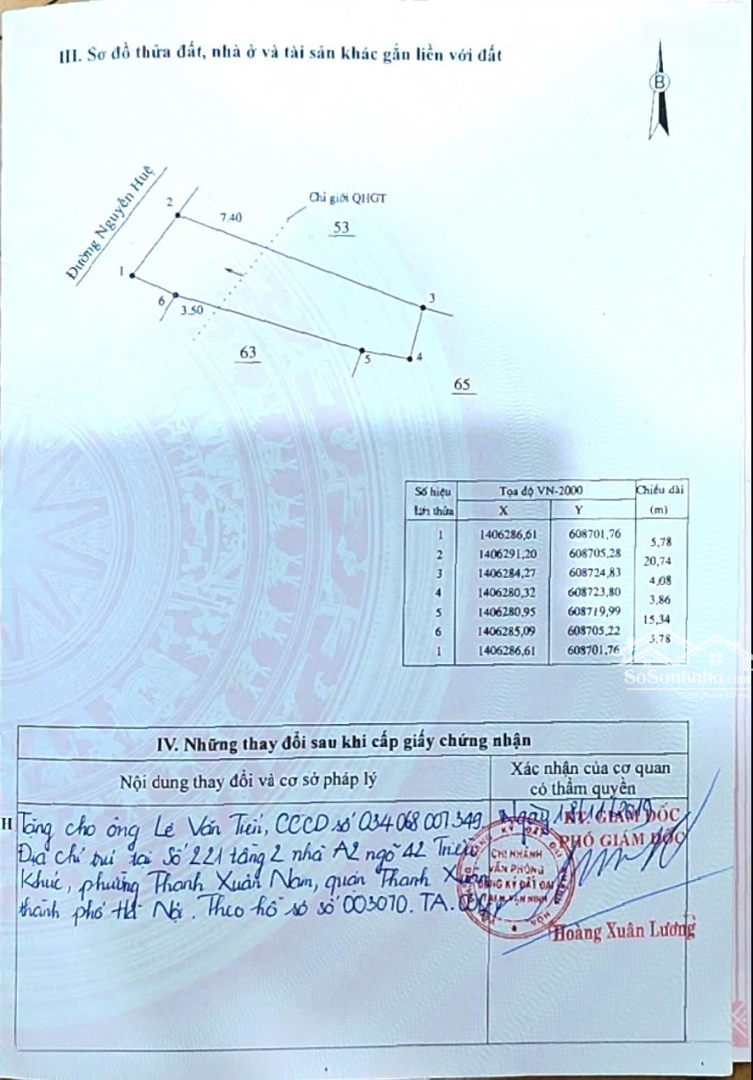 III. Sơ đồ thửa đất, nhà ở và tài sản khác gắn liền với đất
B
Đường Nguyễn Huệ
2
7.40
Chỉ giới QHGT
53
1
6
3.50
3
63
5
4
65
Số hiệu Tọa độ VN-2000 Chiều dài
đỉnh thửa X Y (m)
1 1406286,61 608701,76
5,78
2 1406291,20 608705,28
20,74
3 1406284,27 608724,83
4,08
4 1406280,32 608723,80
3,86
5 1406280,95 608719,99
15,34
6 1406285,09 608705,22
3,78
1 1406286,61 608701,76
SoSanhnha.com
IV. Những thay đổi sau khi cấp giấy chứng nhận
Nội dung thay đổi và cơ sở pháp lý
Xác nhận của cơ quan
có thẩm quyền
H
Tặng cho ông Lê Văn Tiến, CCCD số 034 068 001 349
Địa chỉ trú tại Số 221 tầng 2 nhà A2 ngõ 42 Triều
Khúc, phường Thanh Xuân Nam, quận Thanh Xuân
thành phố Hà Nội. Theo hồ sơ số 003070. TA.
Ngày 18/11/2019
KT. GIÁM ĐỐC
PHÓ GIÁM ĐỐC
CHI NHÁNH
VĂN PHÒNG
ĐĂNG KÝ ĐẤT ĐAI
Hoàng Xuân Lương